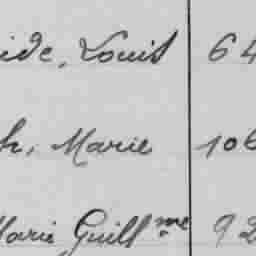 ide, Louis 64
h, Marie 106
Marie Guill.me 92